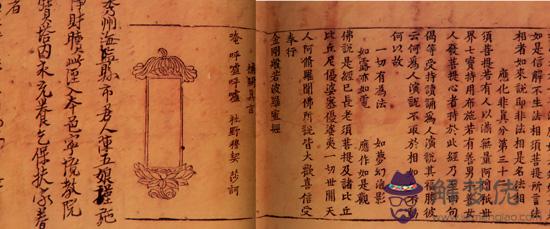 如是信解不生法相須菩提所言法
相者如來說即非法相是名法相
應化非真分第三十二
須菩提若有人以滿無量阿僧祇世
界七寶持用布施若有善男子善女
人發菩提心者持於此經乃至四句
偈等受持讀誦為人演說其福勝彼
云何為人演說不取於相如如不動
何以故
一切有為法 如夢幻泡影
如露亦如電 應作如是觀
佛說是經已長老須菩提及諸比丘
比丘尼優婆塞優婆夷一切世間天
人阿脩羅聞佛所說皆大歡喜信受
奉行
金剛般若波羅蜜經
補闕真言
唵 呼嚧呼嚧 社曳穆契 莎訶
秀州海鹽縣市居人陳五娘謹施
淨財贖此經入本邑寧境教院
寶塔内永充養乞保扶承眷
者
解梦佬
www.jiemenglao.com